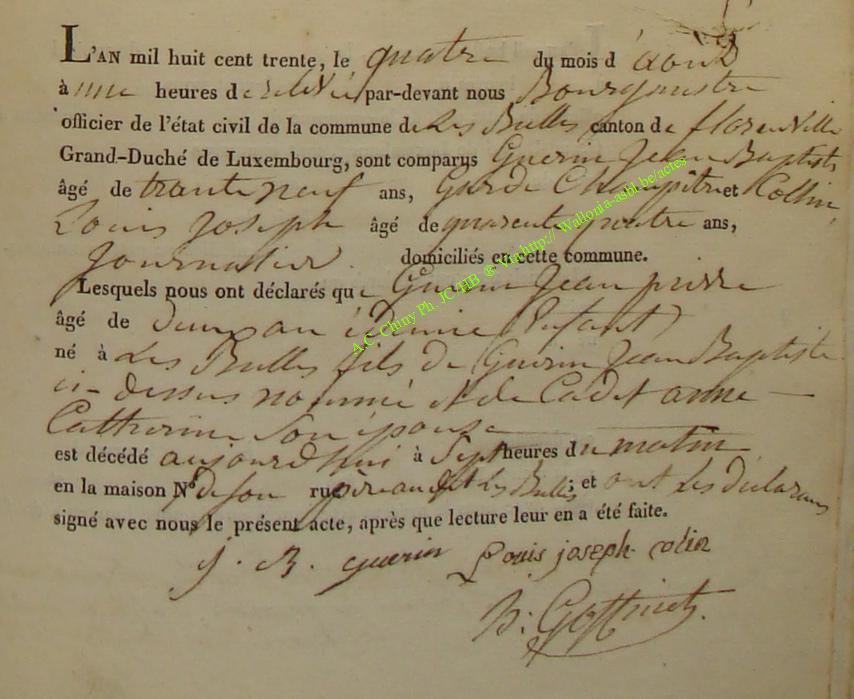 L'AN mil huit cent trente, le quatre du mois d'août
à une heures de relevée par-devant nous Bourgmestre
officier de l'état civil de la commune de Les Bulles canton de florenville
Grand-Duché de Luxembourg, sont comparus Guerin Jean Baptiste
âgé de trante neuf ans, Garde Champitre et Collin
Louis Joseph âgé de quarente quatre ans,
Journalier. domiciliés en cette commune.
Lesquels nous ont déclarés que Guerin Jean pierre
âgé de d'un an et demie Enfant
né à Les Bulles fils de Guerin Jean Baptiste
ci-dessus nommé et de Cadet anne
Catherine Son épouse
est décédé aujourdhui à Sept heures du matin
en la maison N° de son rue père au dit Les Bulles; et ont Les déclarans
signé avec nous le présent acte, après que lecture leur en a été faite.
J. B. guerin Louis joseph colin
A.C Chiny Ph. JC/HB @ Via http:// Wallonia-asbl.be/actes